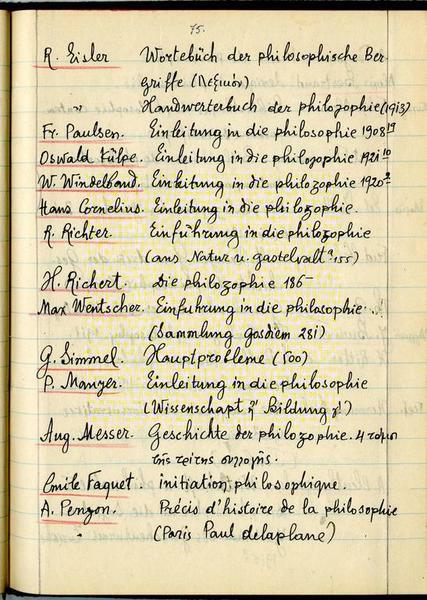 75.
R. Eisler Wortebüch der philosophische Ber-
griffe (Λεξικόν)
" Handworterbuch der philozophie (1913)
Fr. Paulsen. Einleitung in die philosophie 1908 19
Oswald Külpe. Einleitung in die philozophie 1921 10
W. Windelband. Einleitung in die philozophie 1920 2
Hans Cornelius. Einleitung in die philozophie.
R. Richter. Einführung in die philozophie
(aus Natur u. 155)
H. Richert. Die philozophie 186
Max Wentscher. Einfuhrung in die philosophie.
(Sammlung gosdiem 281)
G. Simmel. Hauptprobleme (500)
P. Menzer. Einleitung in die philozophie
(Wissenschaft ή Bildung)
Aug. Messer. Geschichte der philozophie. 4 τόμοι
τῆς τρίτης συλλογῆς.
Emile Faguet initiation philosophique.
A. Penjon. Précis d'histoire de la philosophie
" (Paris Paul delaplane)